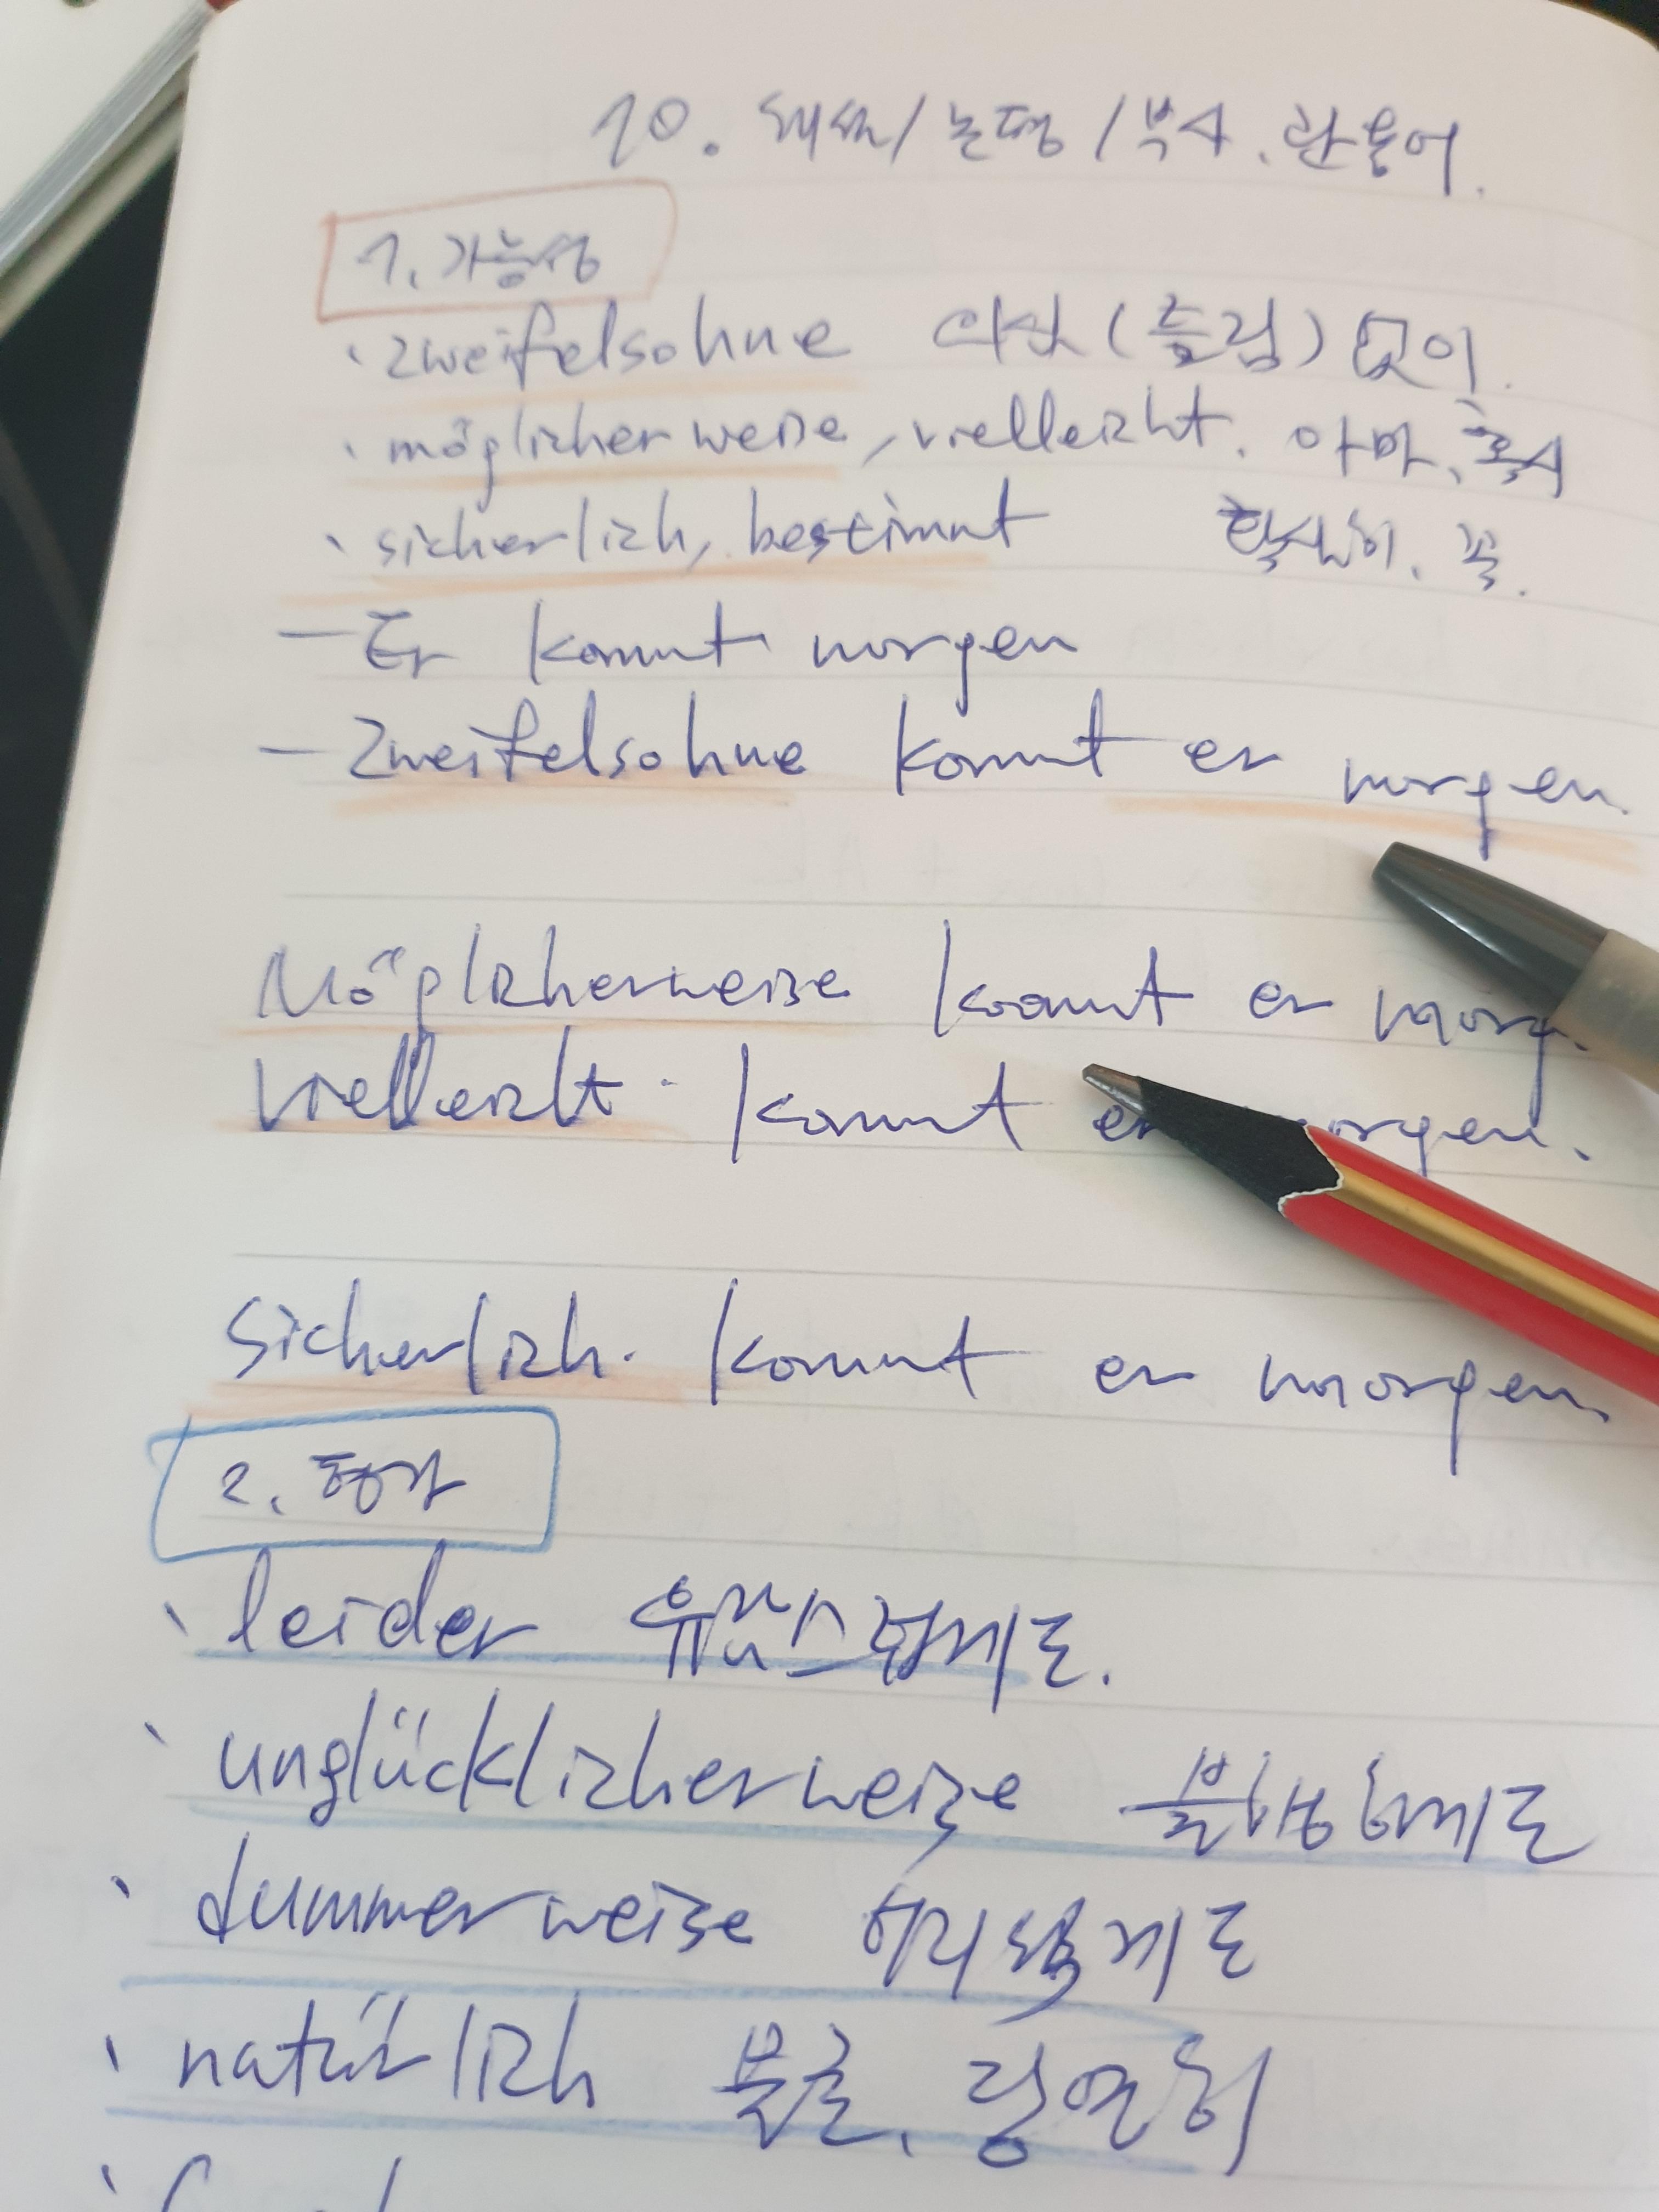 10. 해설/논평/부사. 관용어.
1. 가능성
· zweifelsohne 의심(틀림)없이.
· möglicherweise, vielleicht. 아마, 혹시
· sicherlich, bestimmt 확실히, 꼭.
— Er kommt morgen
— Zweifelsohne kommt er morgen.
Möglicherweise kommt er morg
Vielleicht kommt er morgen.
Sicherlich kommt er morgen.
2. 평가
· leider 유감스럽게도.
· unglücklicherweise 불행하게도
· dummerweise 어리석게도
· natürlich 물론, 당연히